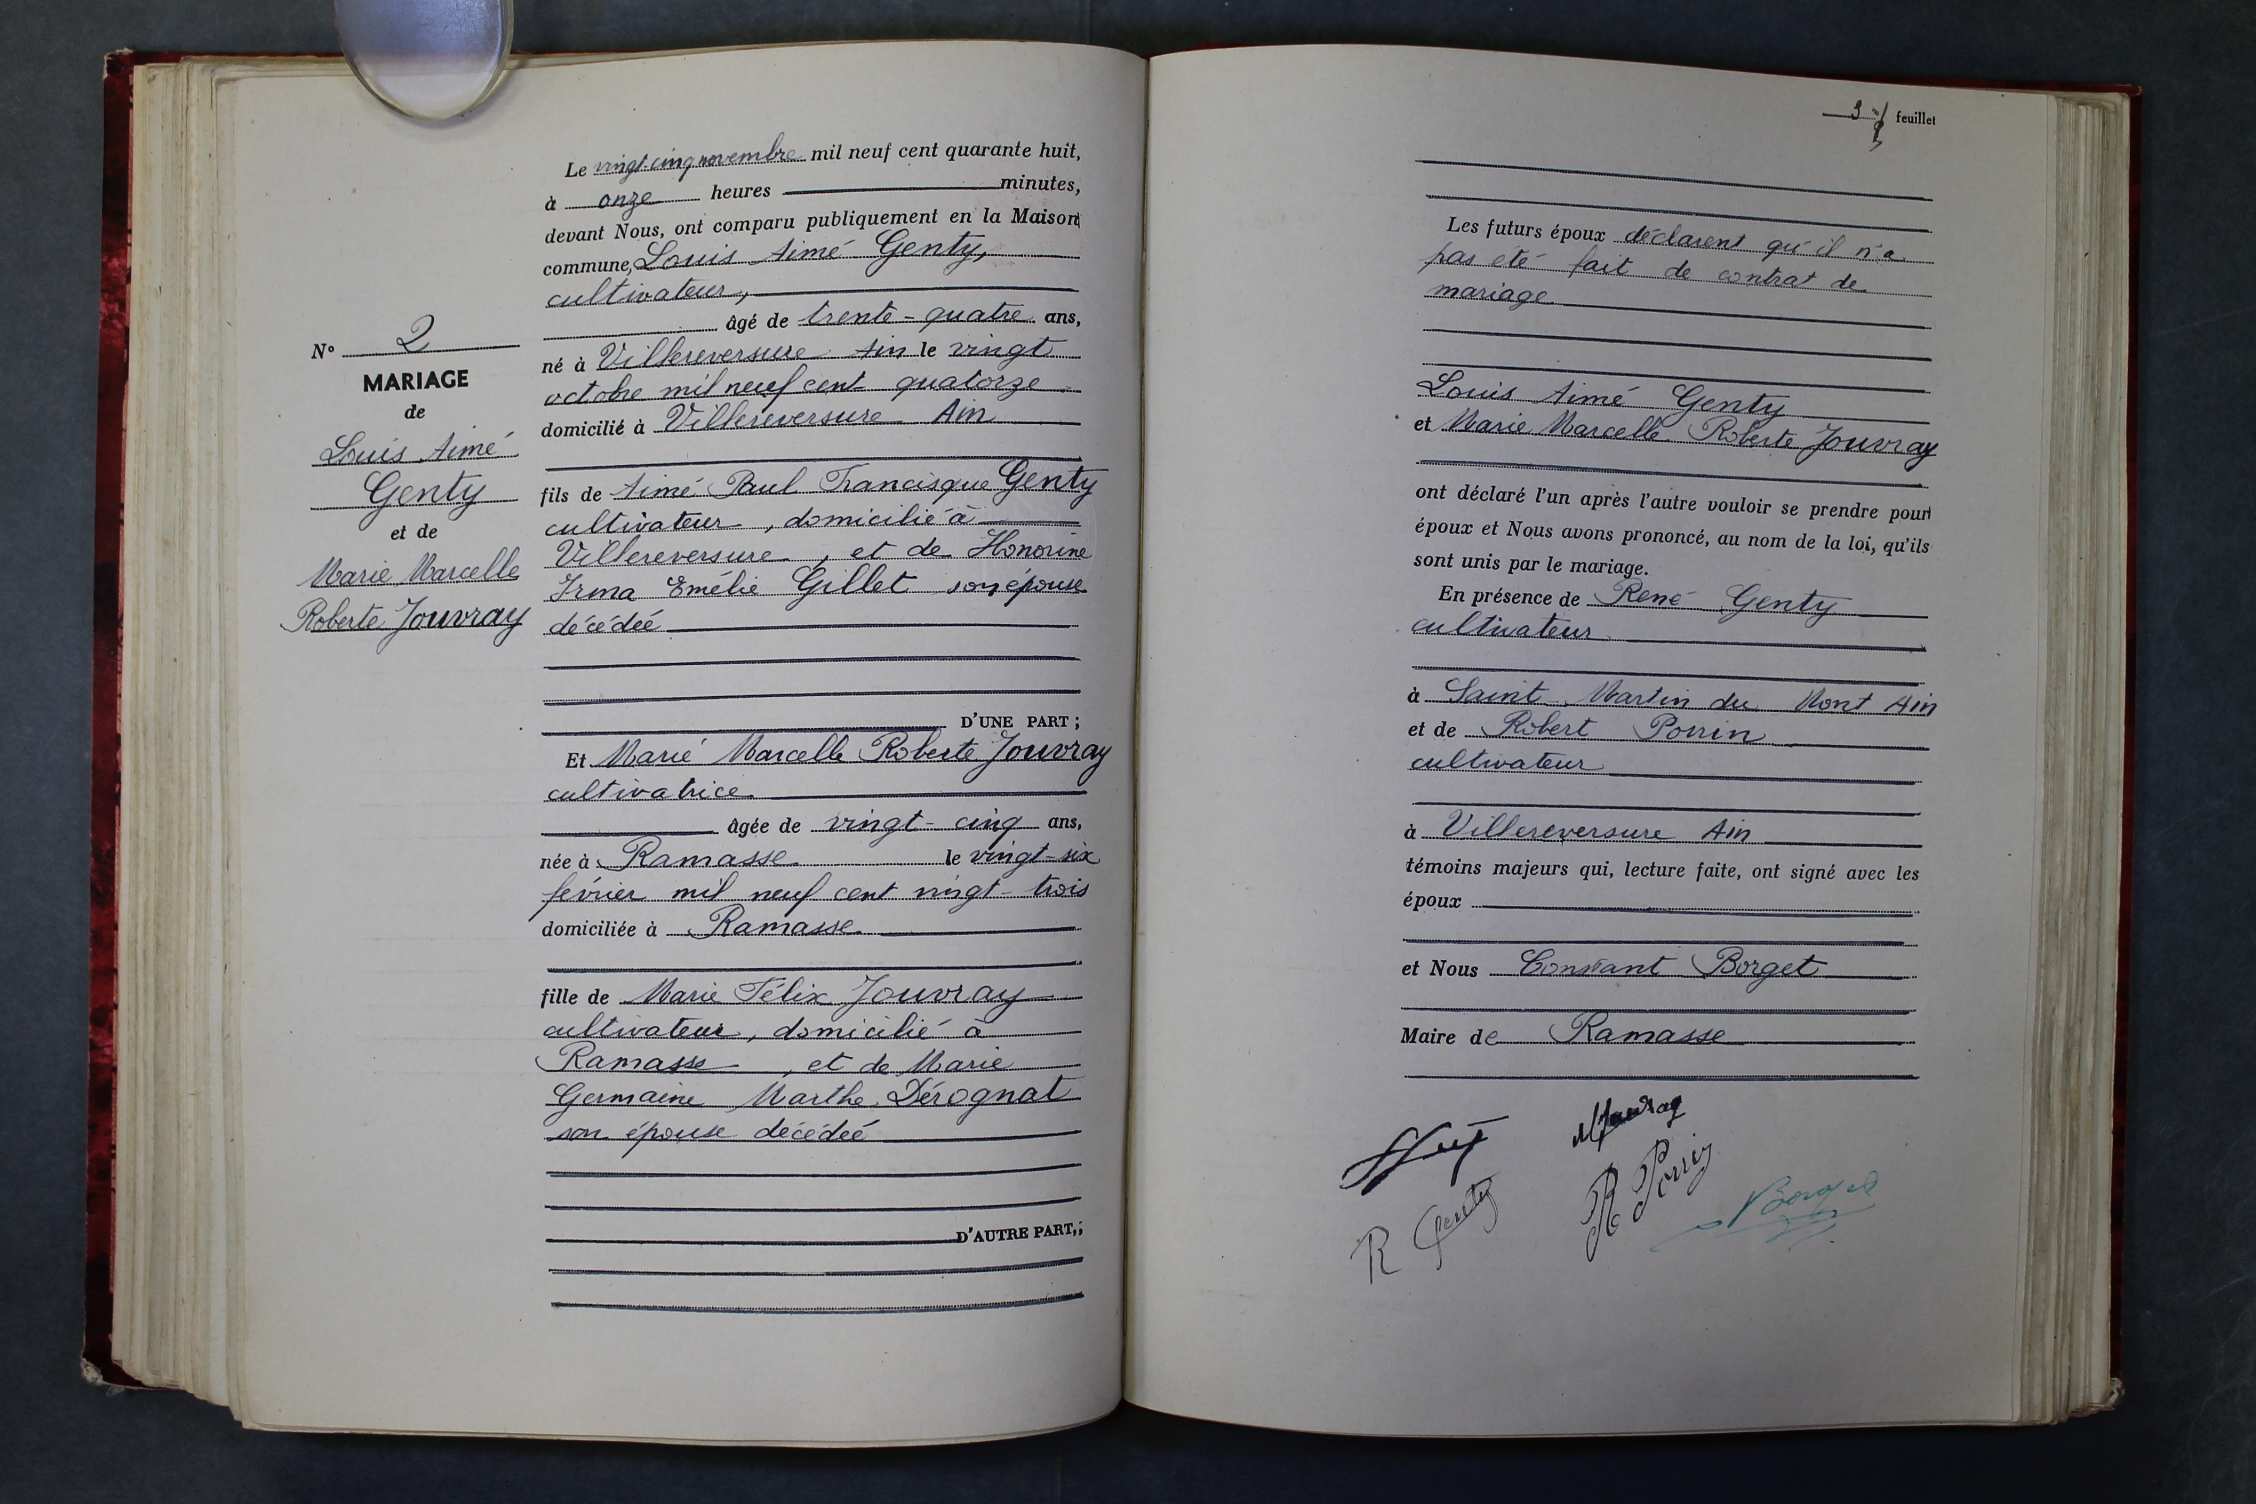 Le vingt-cinq novembre mil neuf cent quarante huit,
à onze heures minutes,
devant Nous, ont comparu publiquement en la Maison
commune, Louis Aimé Genty,
cultivateur,
âgé de trente-quatre ans,
né à Villereversure Ain le vingt
octobre mil neuf cent quatorze
domicilié à Villereversure Ain
fils de Aimé Paul Francisque Genty
cultivateur, domicilié à
Villereversure, et de Honorine
Irma Emélie Gillet son épouse
décédée
D'UNE PART ;
Et Marie Marcelle Roberte Jouvray
cultivatrice
âgée de vingt-cinq ans,
née à Ramasse le vingt-six
février mil neuf cent vingt-trois
domiciliée à Ramasse
fille de Marie Félix Jouvray
cultivateur, domicilié à
Ramasse, et de Marie
Germaine Marthe Dérognat
son épouse décédée
D'AUTRE PART, ;
N° 2
MARIAGE
de
Louis Aimé
Genty
et de
Marie Marcelle
Roberte Jouvray
feuillet
Les futurs époux déclarent qu'il n'a
pas été fait de contrat de
mariage
Louis Aimé Genty
et Marie Marcelle Roberte Jouvray
ont déclaré l'un après l'autre vouloir se prendre pour
époux et Nous avons prononcé, au nom de la loi, qu'ils
sont unis par le mariage.
En présence de René Genty
cultivateur
à Saint Martin du Mont Ain
et de Robert Porrin
cultivateur
à Villereversure Ain
témoins majeurs qui, lecture faite, ont signé avec les
époux
et Nous Constant Borget
Maire de Ramasse
M Jouvray
R Genty
R Porrin
Borget